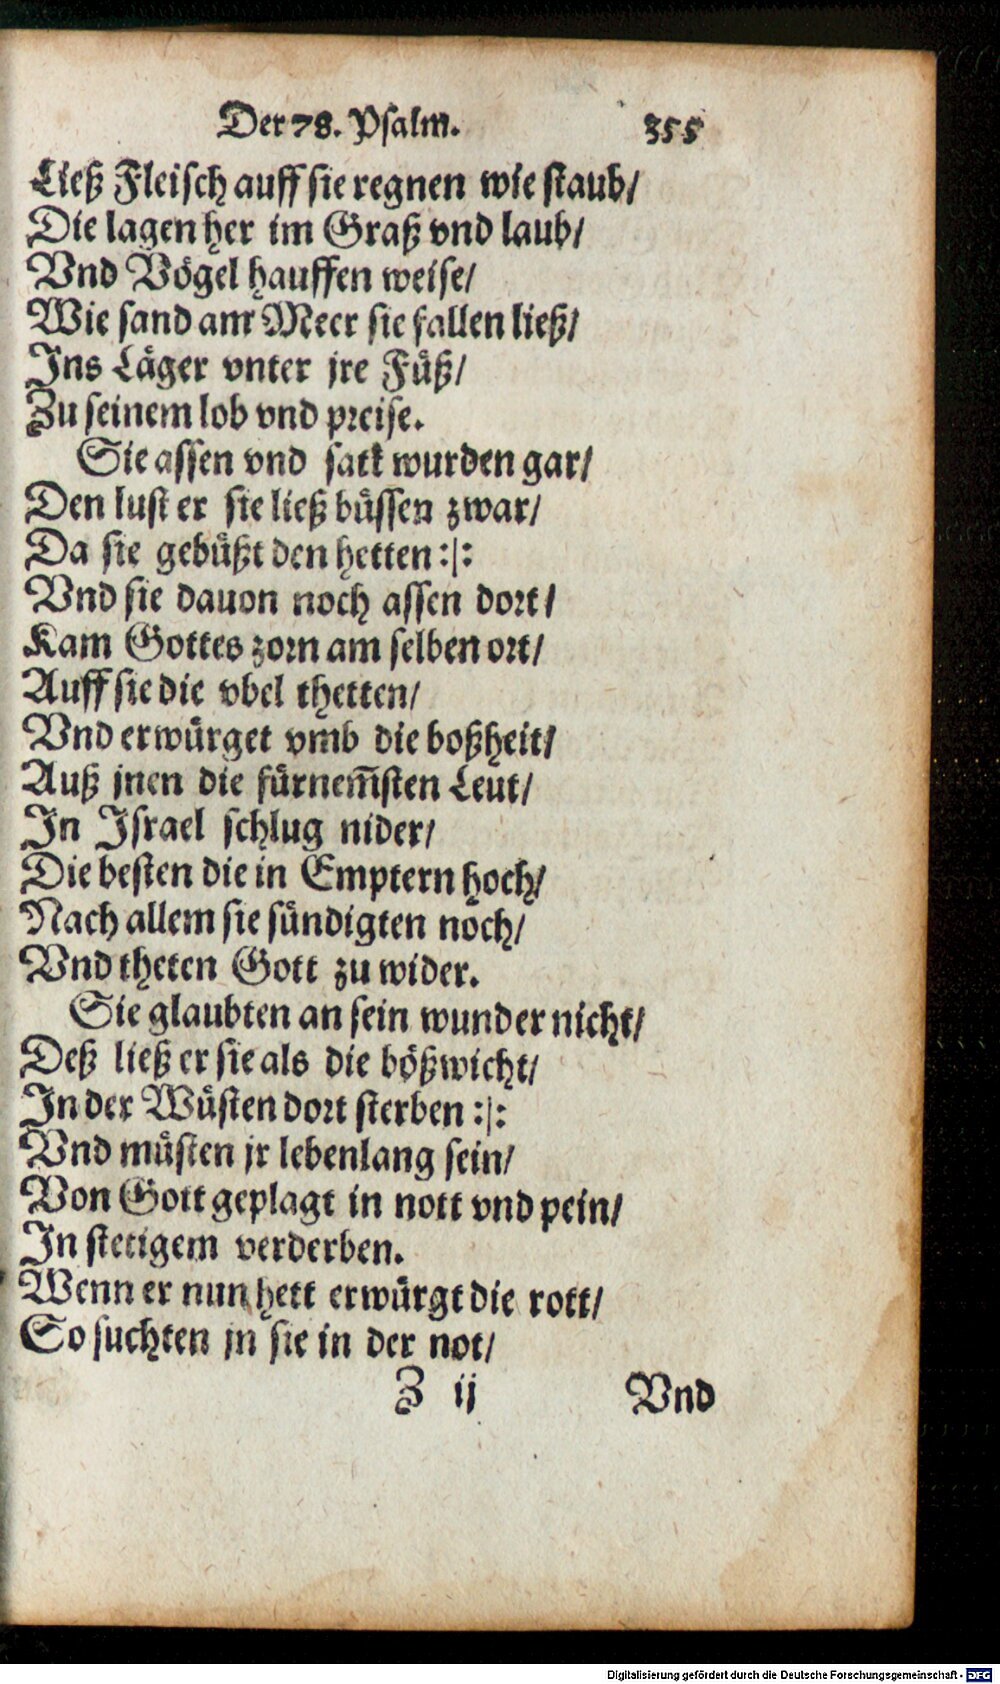 Der 78. Psalm. 355
Ließ Fleisch auff sie regnen wie staub/
Die lagen her im Graß vnd laub/
Vnd Vögel hauffen weise/
Wie sand am Meer sie fallen ließ/
Ins Läger vnter jre Füß/
Zu seinem lob vnd preise.
Sie assen vnd satt wurden gar/
Den lust er sie ließ büssen zwar/
Da sie gebüßt den hetten :|:
Vnd sie dauon noch assen dort/
Kam Gottes zorn am selben ort/
Auff sie die vbel thetten/
Vnd erwürget vmb die boßheit/
Auß jnen die fürnem̃sten Leut/
In Israel schlug nider/
Die besten die in Emptern hoch/
Nach allem sie sündigten noch/
Vnd theten Gott zu wider.
Sie glaubten an sein wunder nicht/
Deß ließ er sie als die bößwicht/
In der Wüsten dort sterben :|:
Vnd müsten jr lebenlang sein/
Von Gott geplagt in nott vnd pein/
In stetigem verderben.
Wenn er nun hett erwürgt die rott/
So suchten jn sie in der not/
Z ij Vnd
Digitalisierung gefördert durch die Deutsche Forschungsgemeinschaft - DFG